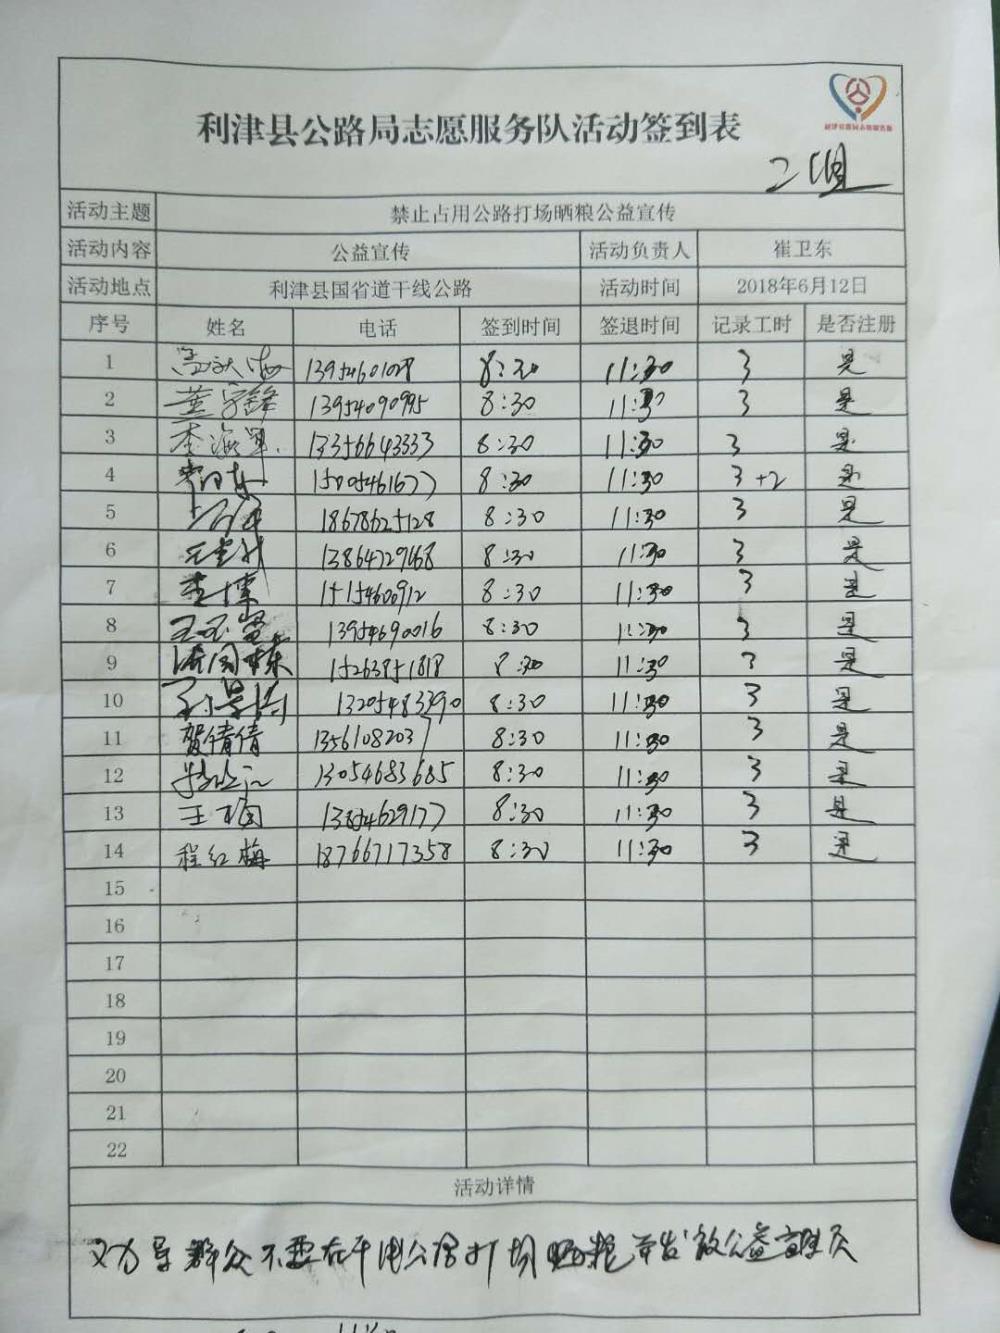 利津县公路局志愿服务队活动签到表
二组
活动主题 禁止占用公路打场晒粮公益宣传
活动内容 公益宣传 活动负责人 崔卫东
活动地点 利津县国省道干线公路 活动时间 2018年6月12日
序号 姓名 电话 签到时间 签退时间 记录工时 是否注册
1 8:30 11:30 3 是
2 13954090995 8:30 11:30 3 是
3 李海军 13356643333 8:30 11:30 3 是
4 15005461677 8:30 11:30 3+2 是
5 18678625128 8:30 11:30 3 是
6 13864729668 8:30 11:30 3 是
7 李栋 15154600912 8:30 11:30 3 是
8 13954690016 8:30 11:30 3 是
9 15263851818 8:30 11:30 3 是
10 13205483390 8:30 11:30 3 是
11 贺倩倩 13561082037 8:30 11:30 3 是
12 13054683685 8:30 11:30 3 是
13 8:30 11:30 3 是
14 程红梅 18766717358 8:30 11:30 3 是
15
16
17
18
19
20
21
22
活动详情
劝导群众不要在干线公路打场晒粮 并发放公益宣传页